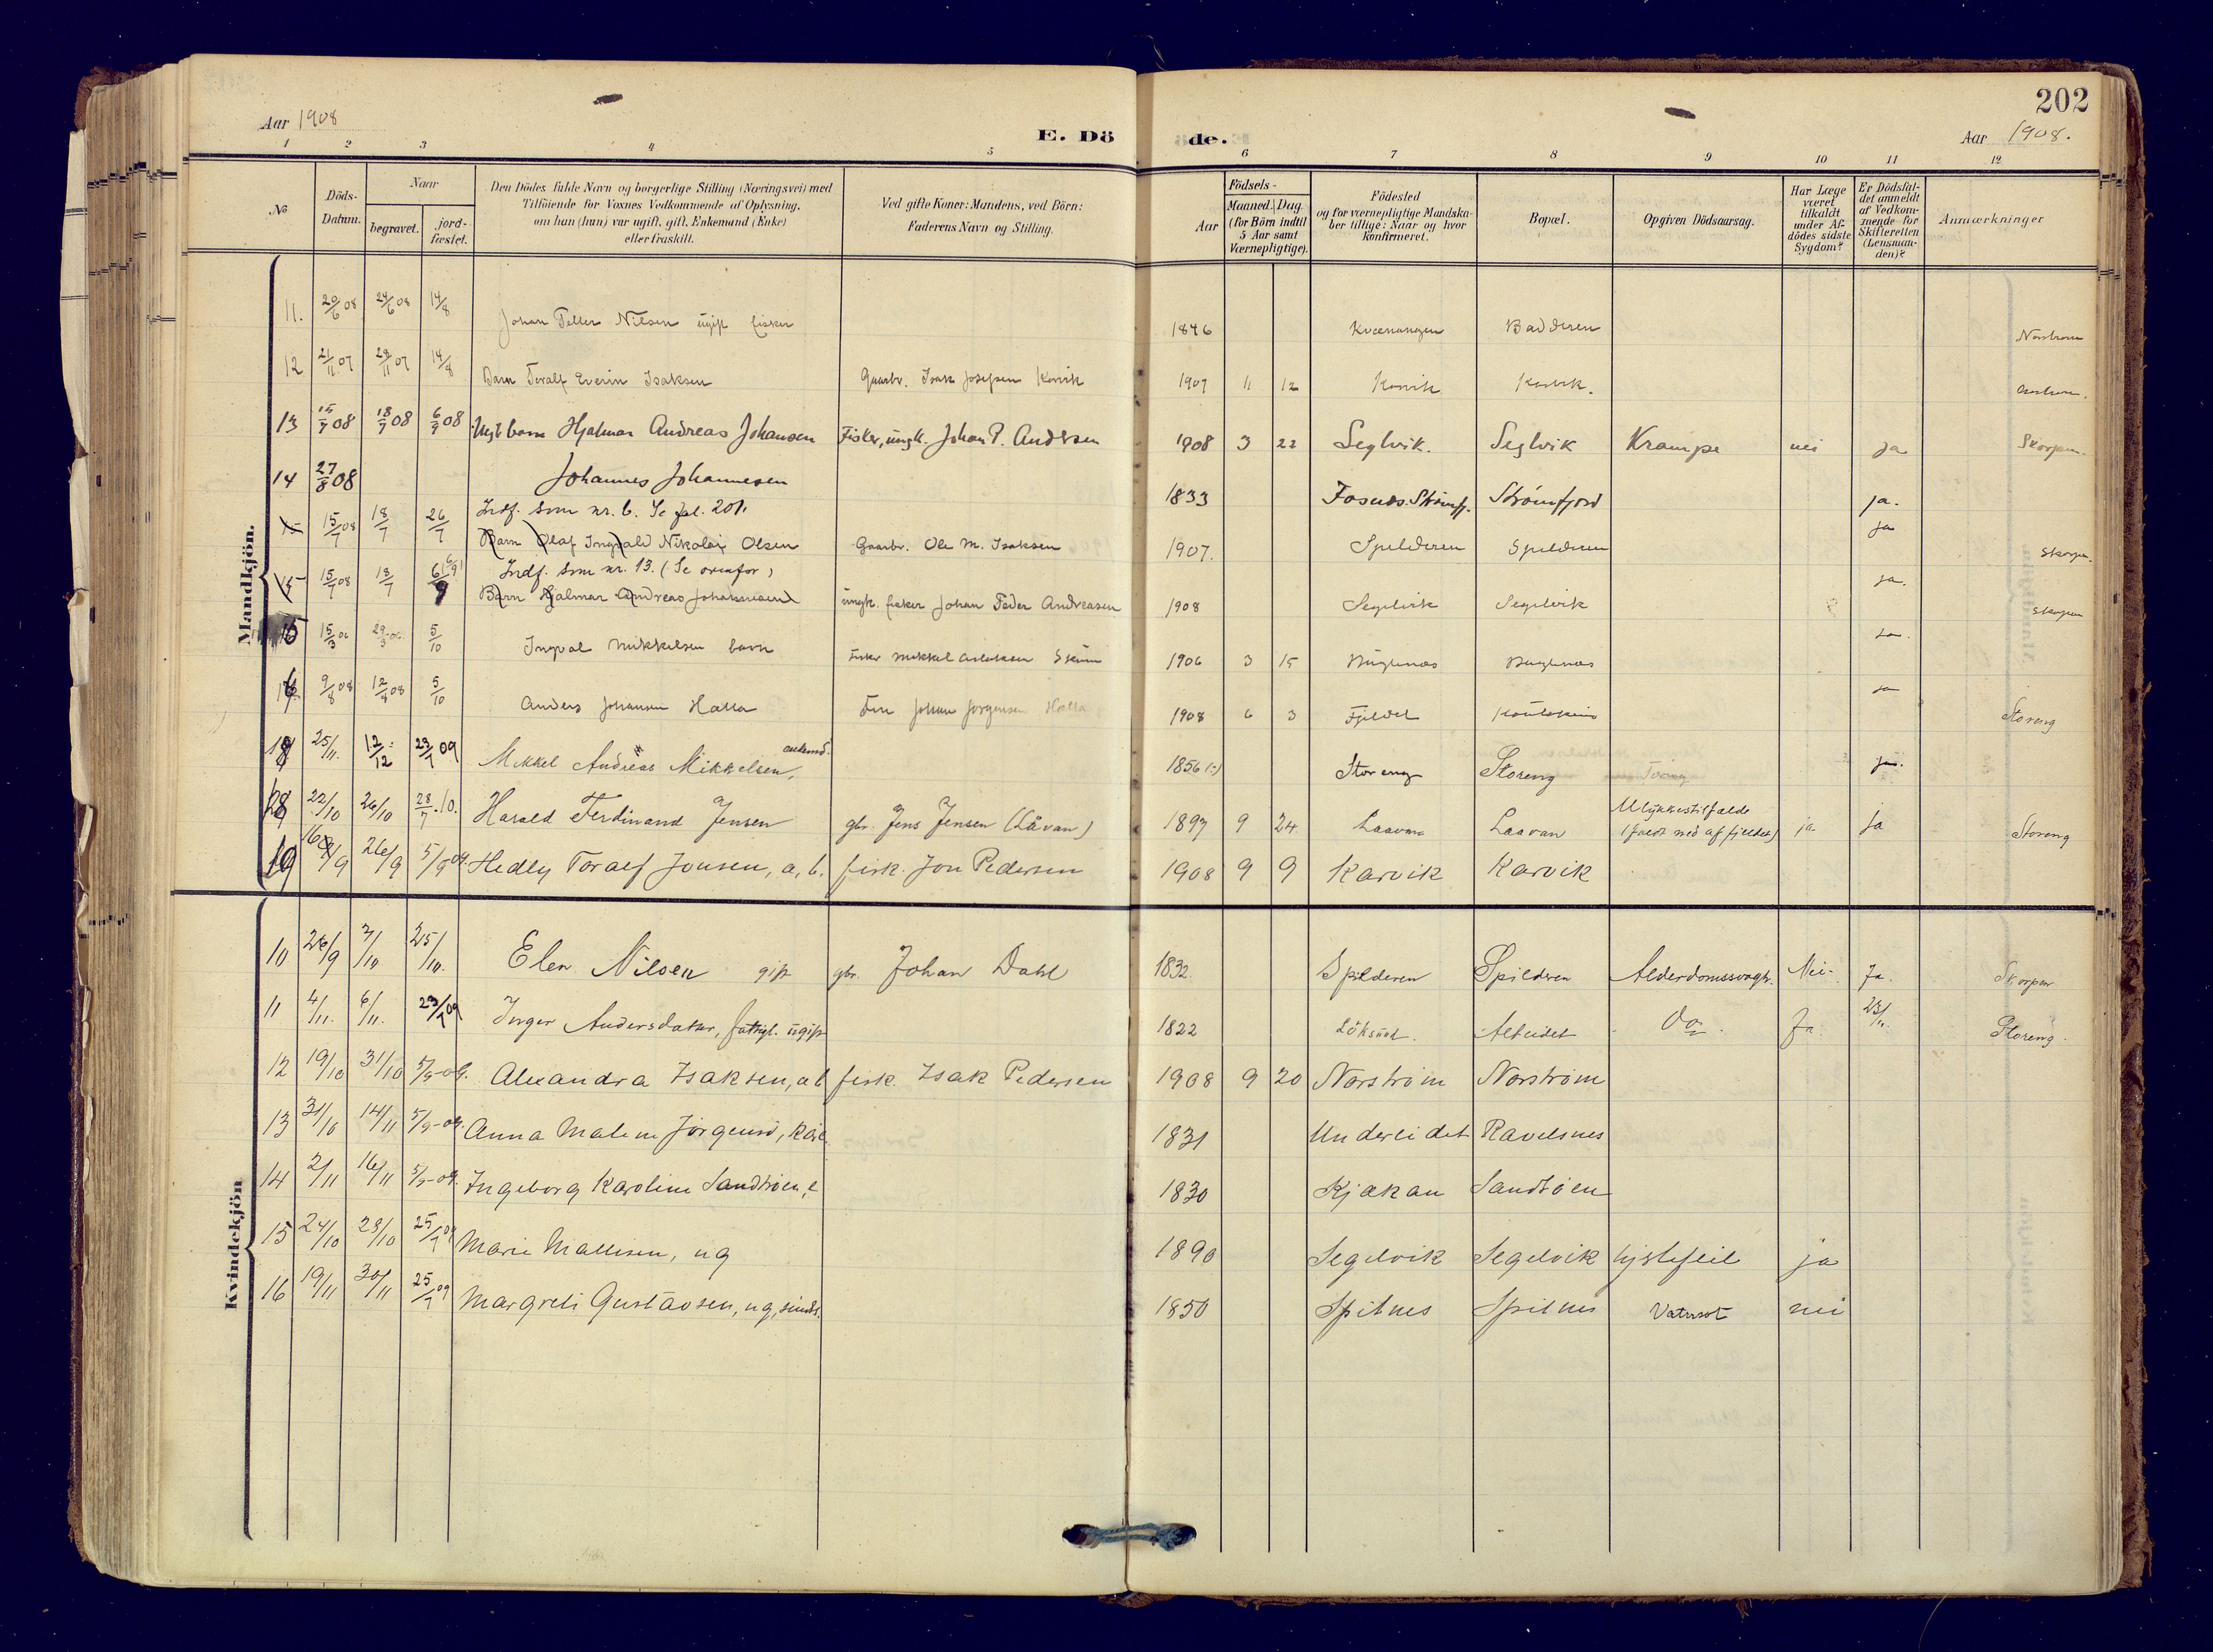 202
Aar 1908
E. Döde.
Aar 1908.
1 2 3 4 5 6 7 8 9 10 11 12
No
Döds-Datum.
Naar
begravet.
jordfæstet.
Den Dödes fulde Navn og borgerlige Stilling (Næringsvei) med
Tilföiende for Voxnes Vedkommende af Oplysning,
om han (hun) var ugift, gift, Enkemand (Enke)
eller fraskilt.
Ved gifte Koner: Mandens, ved Börn:
Faderens Navn og Stilling.
Födsels-
Aar
Maaned. Dag
(for Börn indtil
5 Aar samt
Værnepligtige).
Födested
og for værnepligtige Mandska-
ber tillige: Naar og hvor
konfirmeret.
Bopæl.
Opgiven Dödsaarsag.
Har Læge
været
tilkaldt
under Af-
dödes sidste
Sygdom?
Er Dödsfal-
det anmeldt
af Vedkom-
mende for
Skifteretten
(Lensman-
den)?
Anmærkninger
Mandkjön.
11. 20/6 08 24/6 08 14/8 Johan Peller Nilsen ugift fisker 1846 Kvænangen Badderen Norstrøm
12 21/11 07 29/11 07 14/8 Barn Toralf Everin Isaksen Gaarbr. Isak Josefsen Korvik 1907 11 12 Korvik Korvik.
13 15/7 08 18/7 08 6/9 08 Uegt barn Hjalmar Andreas Johansen Fisker, ungk. Johan P. Andersen 1908 3 22 Seglvik. Seglvik Krampe nei ja Skorpen.
14 27/8 08 Johannes Johannesen 1833 Fosnes. Strømfj. Strømfjord ja.
Indf. som nr. 6. Se fol. 201.
15 15/7 08 18/7 26/7 Barn Olaf Ingvald Nikolai Olsen Gaarbr. Ole M. Isaksen 1907. Spilderen Spilderen ja Skorpen.
Indf. som nr. 13. (Se ovenfor)
15 15/7 08 18/7 6/9 Barn Hjalmar Andreas Johannesen ungk. fisker Johan Peder Andreasen 1908 Segelvik Segelvik ja. Skorpen
15 15/3 06 29/3 06 5/10 Ingval Mikkelsen barn 1906 3 15
16 9/8 08 12/8 08 5/10 Anders Johansen Hatta Johan Jørgensen Hatta 1908 6 3 Fjeldet Kautokeino ja Storeng
25/11. 12/12 23/7 09 Mikkel Andreas Mikkelsen, 1856 Storeng Storeng ja.
18 22/10 26/10 28/7.10. Harald Ferdinand Jensen gbr. Jens Jensen (Låvan) 1897 9 24 Laavan Laavan Ulykkestilfælde (faldt ned af fjeldet) ja ja Storeng
19 26/9 5/9 09 Hedley Toralf Jonsen, a, b. fisk. Jon Pedersen 1908 9 9 Karvik Karvik
Kvindekjön
10 26/9 7/10 25/10. Elen Nilsen gift gbr. Johan Dahl 1832. Spilderen Spilderen Alderdomssvagh. Nei- Ja. Skorpen
11 4/11. 6/11. 23/7 09 Inger Andersdatter, fattigl. ugift 1822 Löksund. Alteidet Do. Ja. 23/11. Storeng.
12 19/10 31/10 5/9-09. Alexandra Isaksen, ab fisk. Isak Pedersen 1908 9 20 Norstrøm Norstrøm
13 31/10 14/11 5/9-09. Anna Malene Jörgensd, 1831 Undereidet Ravelsnes
14 2/11 16/11 5/9-09. Ingeborg Karoline Sandböen, e 1830 Kjækan Sandböen
15 24/10 28/10 25/7 09 Marie Mallisen, ug 1890 Segelvik Segelvik hjertefeil ja
16 19/11 30/11 25/7 09 Margreti Gustavsen, ug, sinds. 1850 Spitnes Spitnes Vatersot nei